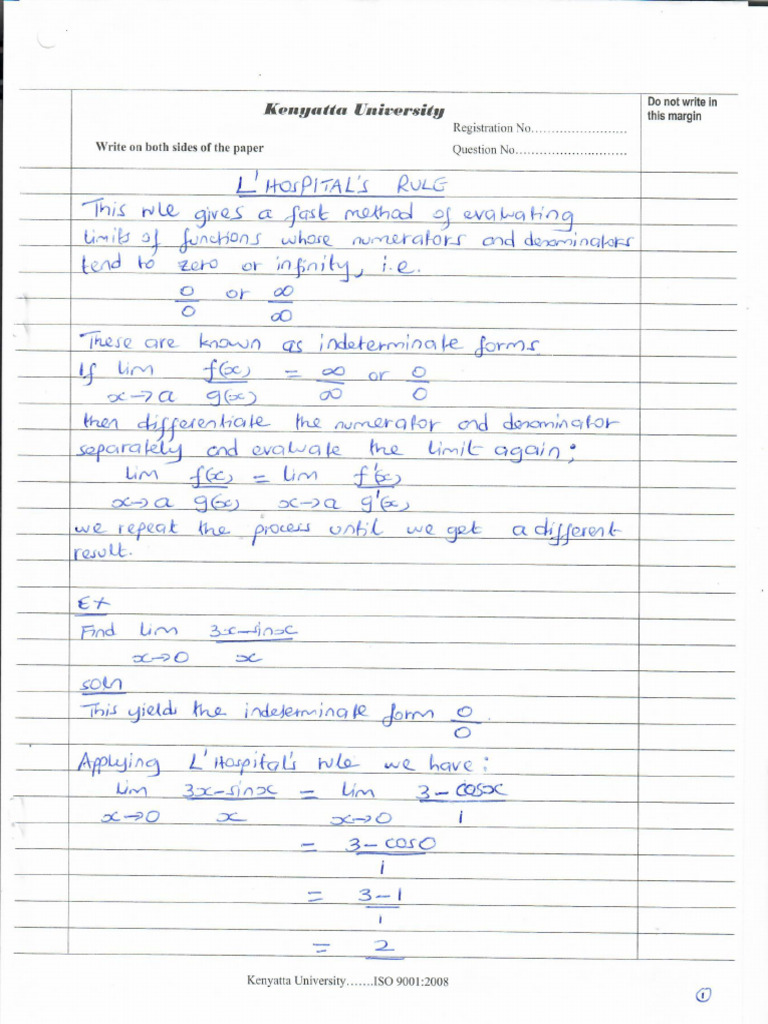 Kenyatta University
Do not write in
this margin
Registration No........................
Write on both sides of the paper
Question No............................
L'HOSPITAL'S RULE
This rule gives a fast method of evaluating
limits of functions whose numerators and denominators
tend to zero or infinity, i.e.
0/0 or ∞/∞
These are known as indeterminate forms
If lim x→a f(x)/g(x) = ∞/∞ or 0/0
then differentiate the numerator and denominator
separately and evaluate the limit again;
lim x→a f(x)/g(x) = lim x→a f'(x)/g'(x)
we repeat the process until we get a different
result.
Ex
Find lim x→0 3x-sinx/x
Soln
This yields the indeterminate form 0/0.
Applying L'Hospital's rule we have:
lim x→0 3x-sinx/x = lim x→0 3-cosx/1
= 3-cos0/1
= 3-1/1
= 2
Kenyatta University.......ISO 9001:2008
1